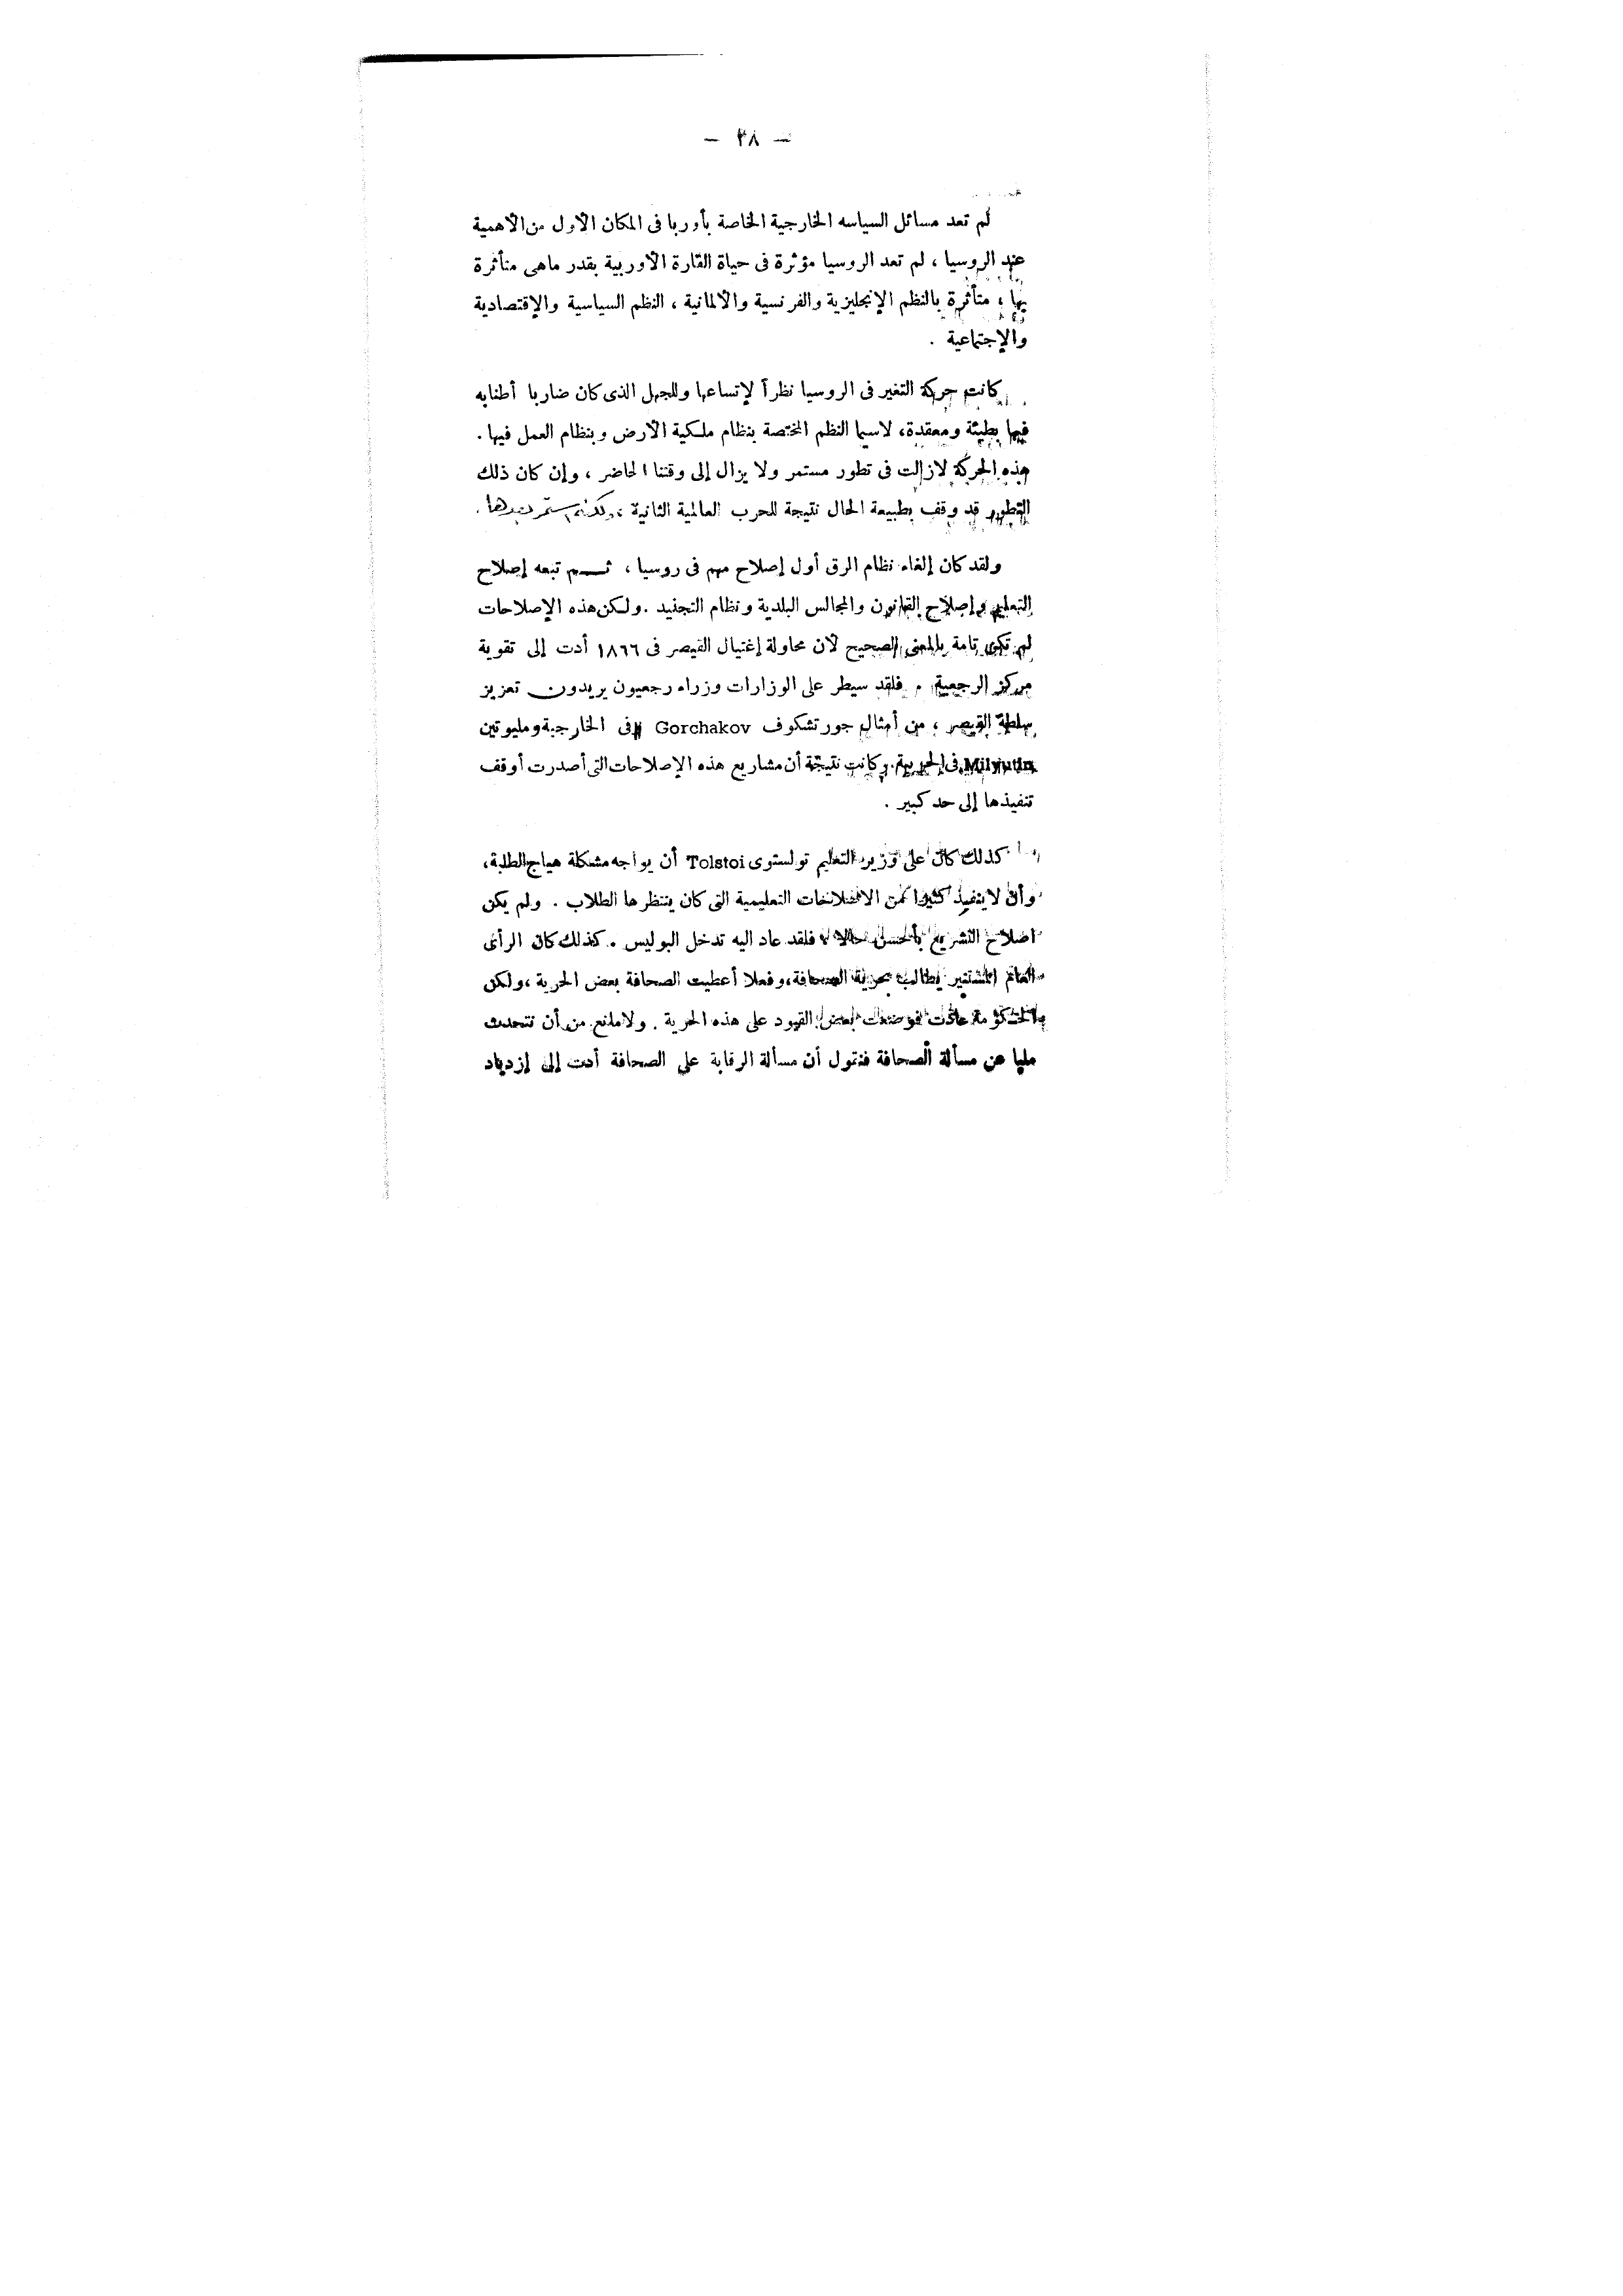 — ٣٨ —
لم تعد مسائل السياسه الخارجية الخاصة بأوربا فى المكان الأول من الأهمية
عند الروسيا ، لم تعد الروسيا مؤثرة فى حياة القارة الأوربية بقدر ماهى متأثرة
بها ؛ متأثرة بالنظم الإنجليزية والفرنسية والألمانية ، النظم السياسية والإقتصادية
والإجتماعية .
كانت حركة التغير فى الروسيا نظراً لإتساعها وللجهل الذى كان ضاربا أطنابه
فيها بطيئة ومعقدة، لاسيما النظم المختصة بنظام ملكية الأرض وبنظام العمل فيها .
هذه الحركة لازالت فى تطور مستمر ولا يزال إلى وقتنا الحاضر ، وإن كان ذلك
التطور قد وقف بطبيعة الحال نتيجة للحرب العالمية الثانية ، ولكنه استمر بعدها .
ولقد كان إلغاء نظام الرق أول إصلاح مهم فى روسيا ، ثم تبعه إصلاح
التعليم وإصلاح القانون والمجالس البلدية ونظام التجنيد . ولكن هذه الإصلاحات
لم تكن تامة بالمعنى الصحيح لأن محاولة إغتيال القيصر فى ١٨٦٦ أدت إلى تقوية
مركز الرجعية . فلقد سيطر على الوزارات وزراء رجعيون يريدون تعزيز
سلطة القيصر ، من أمثال جورتشكوف Gorchakov فى الخارجية ومليوتين
Milyutin فى الحربية. وكانت نتيجة أن مشاريع هذه الإصلاحات التى أصدرت أوقف
تنفيذها إلى حد كبير .
كذلك كان على وزير التعليم تولستوى Tolstoi أن يواجه مشكلة هياج الطلبة،
وأن لاينفيذ كثيرا من الاصلاحات التعليمية التى كان ينتظرها الطلاب . ولم يكن
اصلاح التشريع بأحسن حالا ، فلقد عاد اليه تدخل البوليس . كذلك كان الرأى
العام المستنير يطالب بحرية الصحافة، وفعلا أعطيت الصحافة بعض الحرية ، ولكن
الحكومة عادت فوضعت بعض القيود على هذه الحرية . ولامانع من أن نتحدث
مليا عن مسألة الصحافة فنقول أن مسألة الرقابة على الصحافة أدت إلى إزدياد